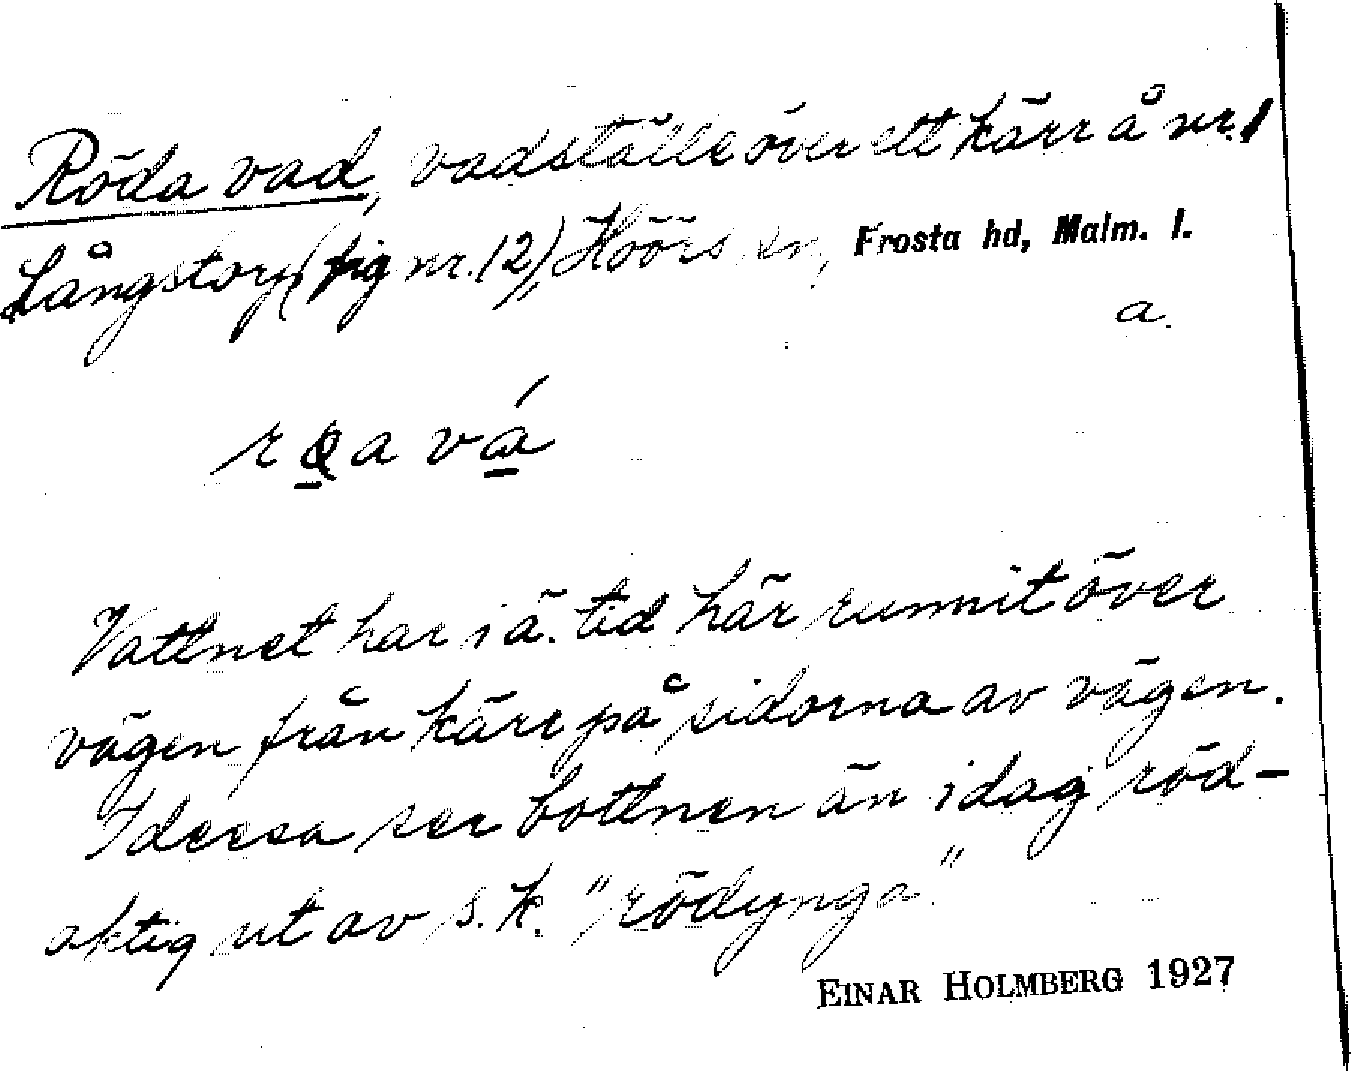 Röda vad, vadställe över ett kärr å nr. 1
Långstorp (fig nr. 12), Höörs sn, Frosta hd, Malm. l.
a.
vá
Vattnet har i ä. tid här runnit över
vägen från kärr på sidorna av vägen.
I dessa ser bottnen än idag röd-
aktig ut av s.k. "rödynga."
EINAR HOLMBERG 1927